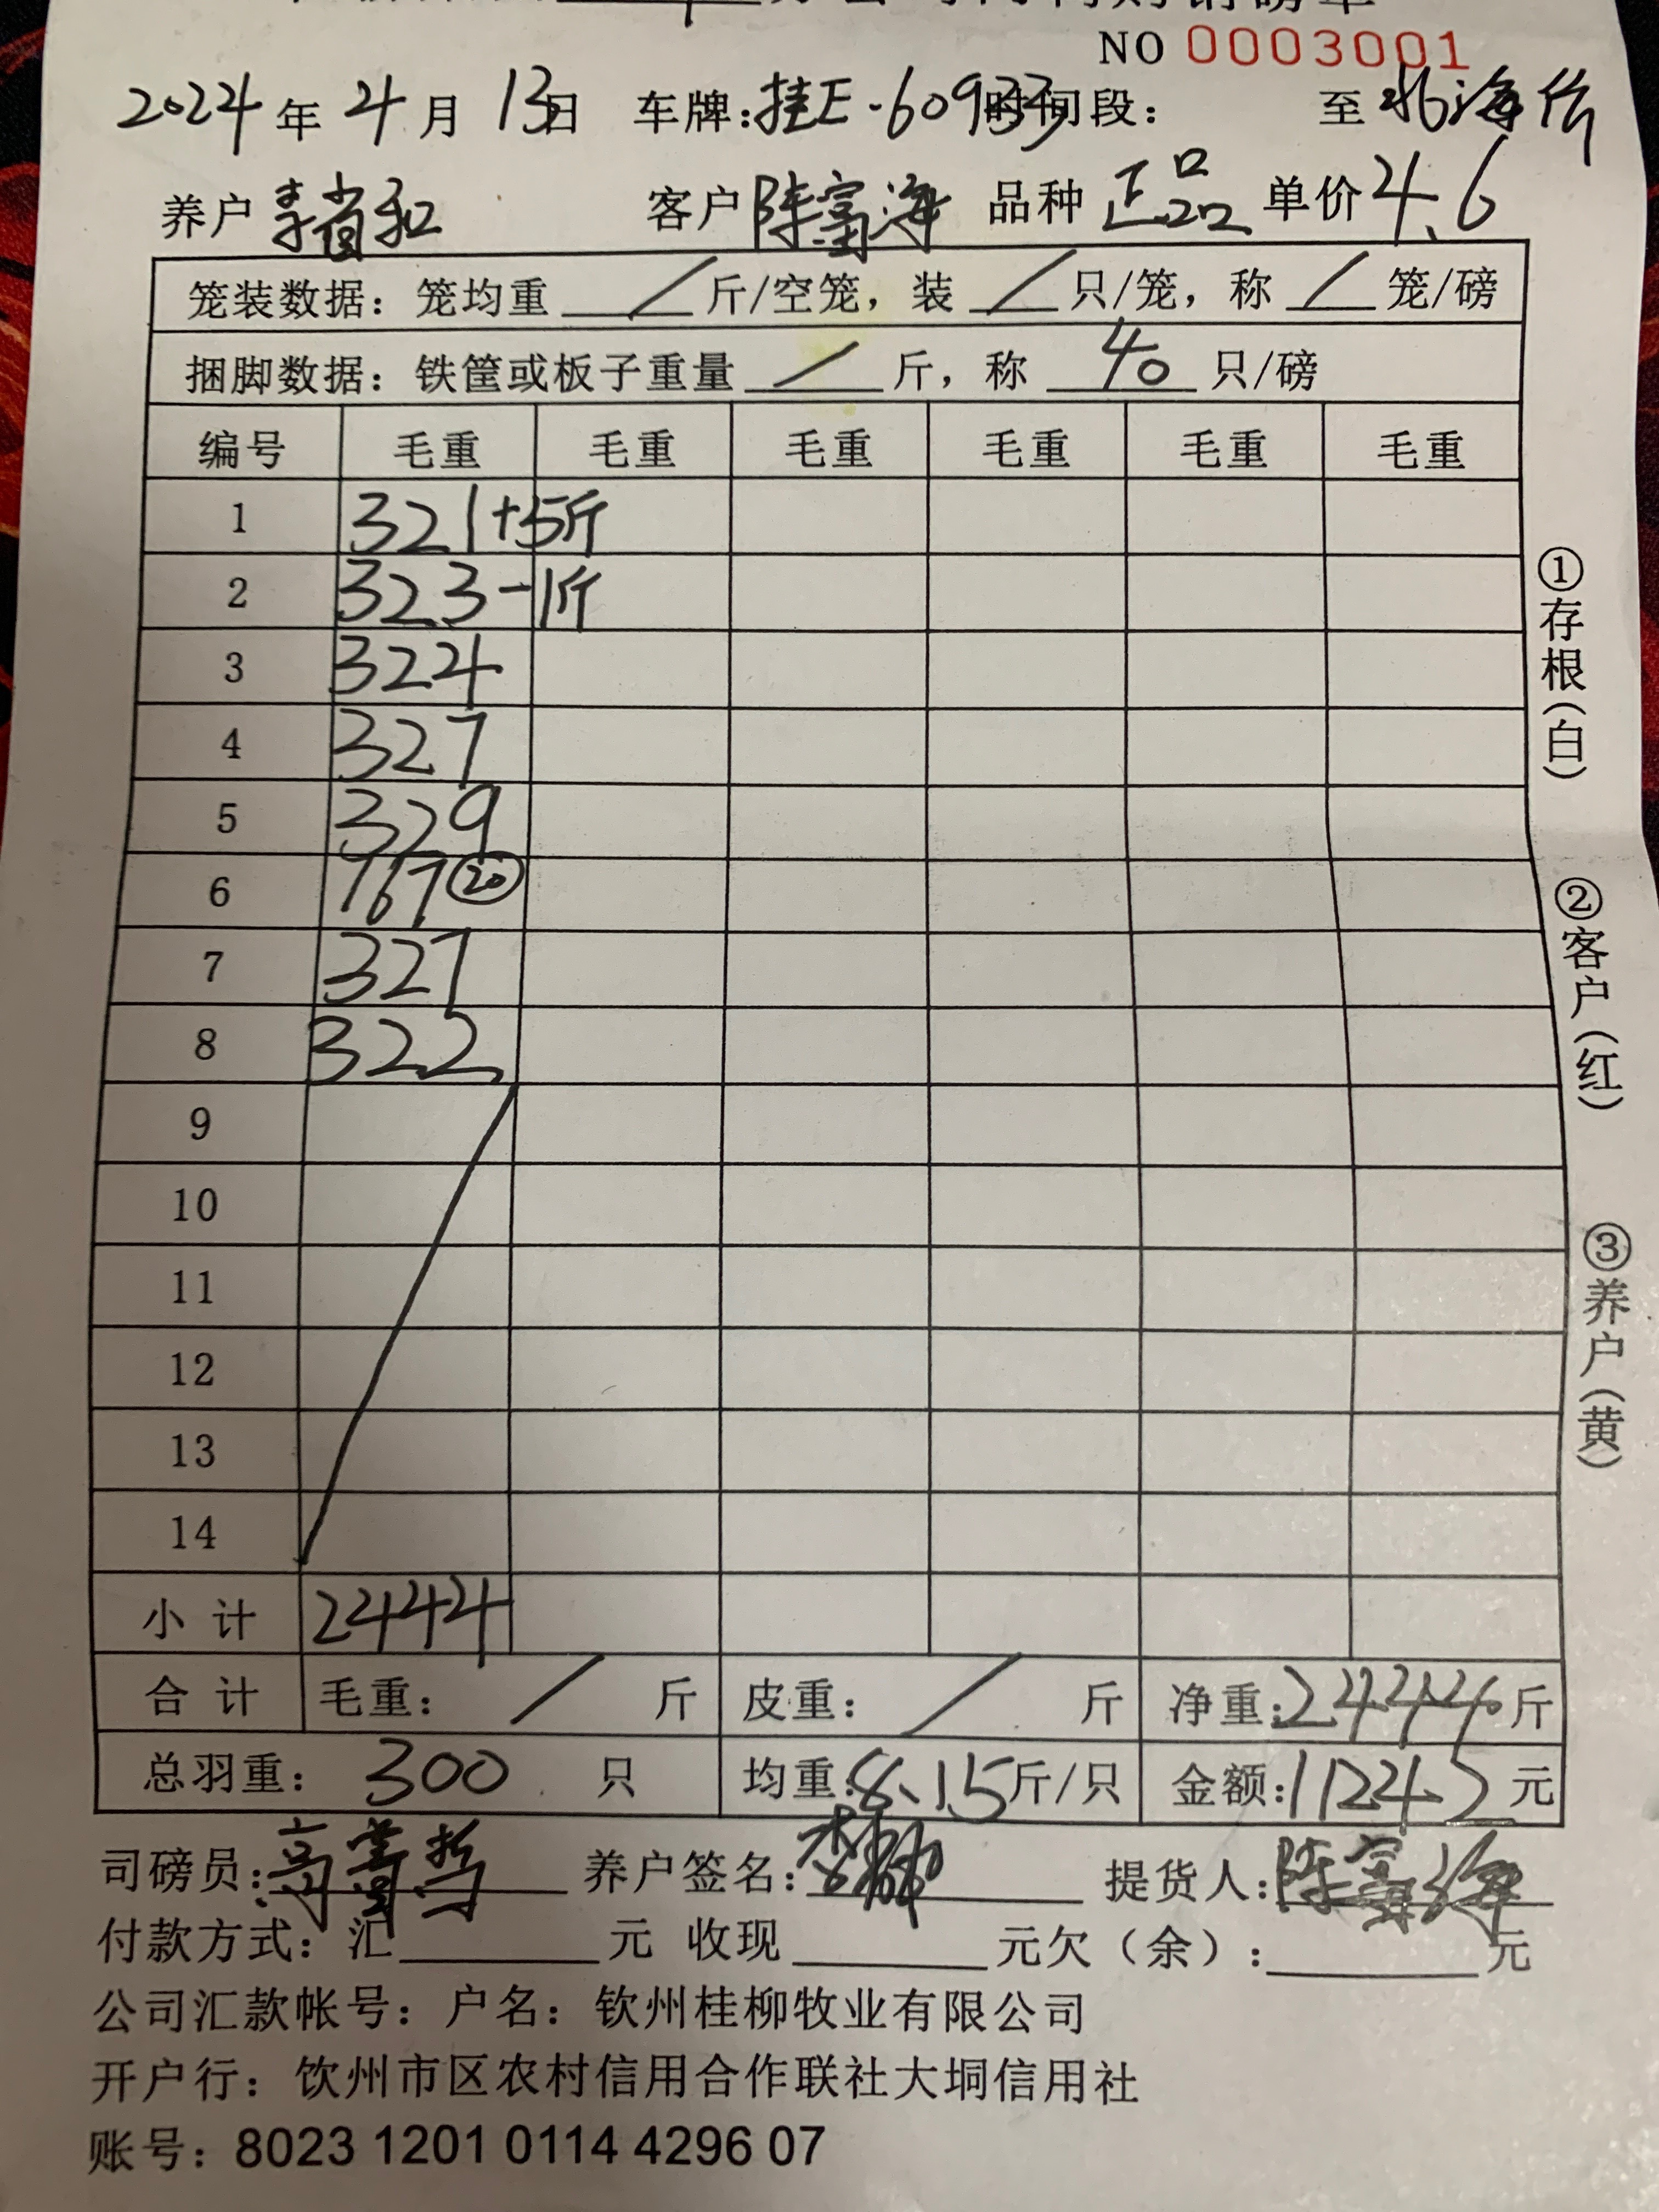 NO 0003001
2024年4月13日 车牌:桂E-60933时间段: 至北海
养户 客户陈富海 品种 正品 单价4.6
笼装数据: 笼均重 / 斤/空笼, 装 / 只/笼, 称 / 笼/磅
捆脚数据: 铁筐或板子重量 / 斤, 称 40 只/磅
编号 毛重 毛重 毛重 毛重 毛重 毛重
1 321+5斤
2 323-1斤
3 324
4 327
5 329
6 167 ⑳
7 327
8 322
9
10
11
12
13
14
小计 2444
合计 毛重: / 斤 皮重: / 斤 净重:2444斤
总羽重: 300 只 均重:8.15斤/只 金额:11242元
①存根(白)
②客户(红)
③养户(黄)
司磅员: 养户签名: 提货人:陈富海
付款方式: 汇 元 收现 元欠(余): 元
公司汇款帐号: 户名: 钦州桂柳牧业有限公司
开户行: 饮州市区农村信用合作联社大垌信用社
账号: 8023 1201 0114 4296 07